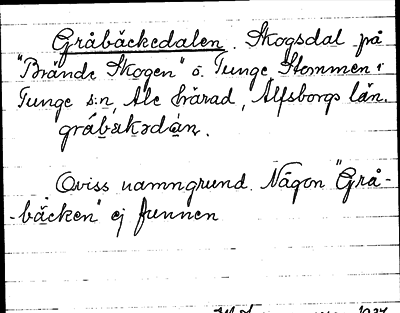 Gråbäckedalen. Skogsdal på
"Brände Skogen" ö. Tunge Stommen i
Tunge s:n, Ale härad, Älfsborgs län.
gråbäkədàn.
Oviss namngrund. Någon "Grå-
-bäcken" ej funnen